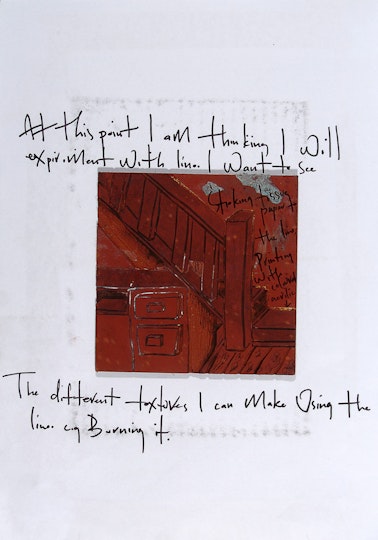 At this point I am thinking I will
expiroment with lino. I want to see
Sticking tissue
paper to
the lino.
Printing
With colored
The different textures I can make Using the
lino. eg Burning it.